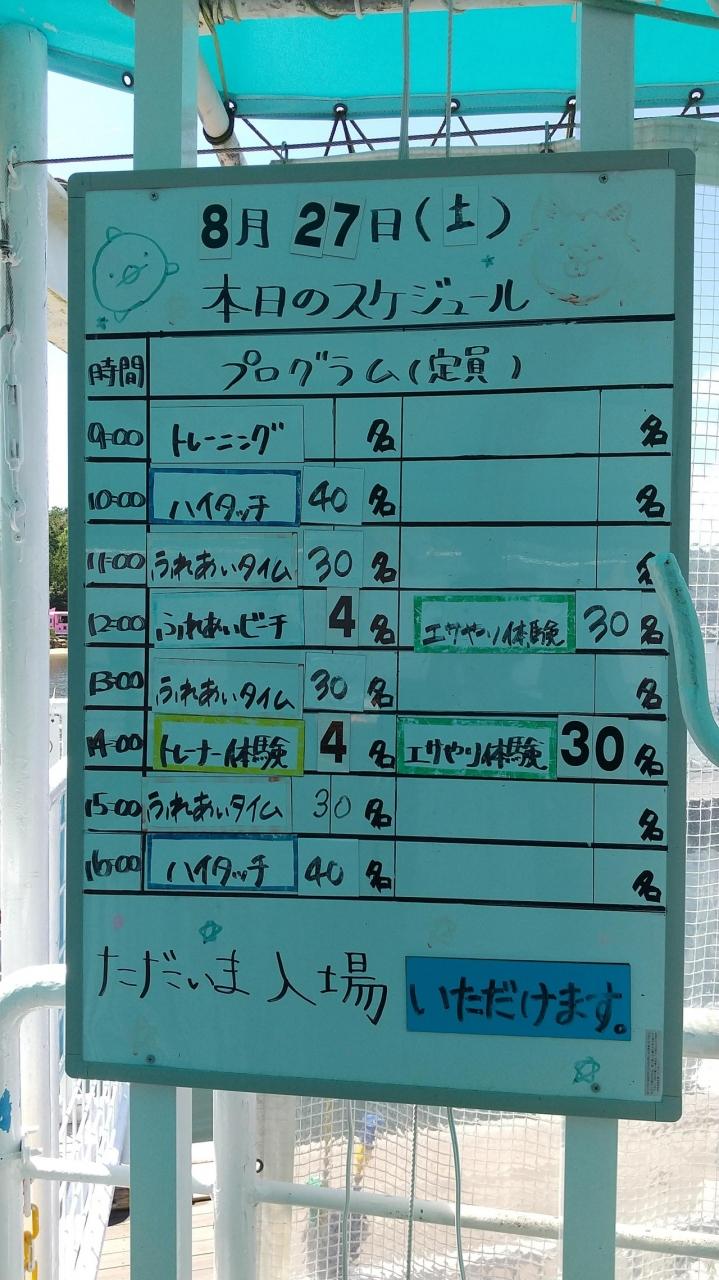 8月27日(土)
本日のスケジュール
時間 プログラム(定員)
9:00 トレーニング 名 名
10:00 ハイタッチ 40名 名
11:00 ふれあいタイム 30名 名
12:00 ふれあいビーチ 4名 エサやり体験 30名
13:00 ふれあいタイム 30名 名
14:00 トレーナー体験 4名 エサやり体験 30名
15:00 ふれあいタイム 30名 名
16:00 ハイタッチ 40名 名
ただいま入場 いただけます。